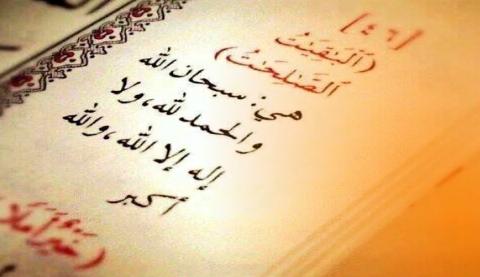 [٤٦]
(ٱلْبَـٰقِيَـٰتُ
ٱلصَّـٰلِحَـٰتُ)
هي: سبحان الله
والحمد لله، ولا
إله إلا الله، والله
أكبر
(خَيْرٌ أَمَلًا)